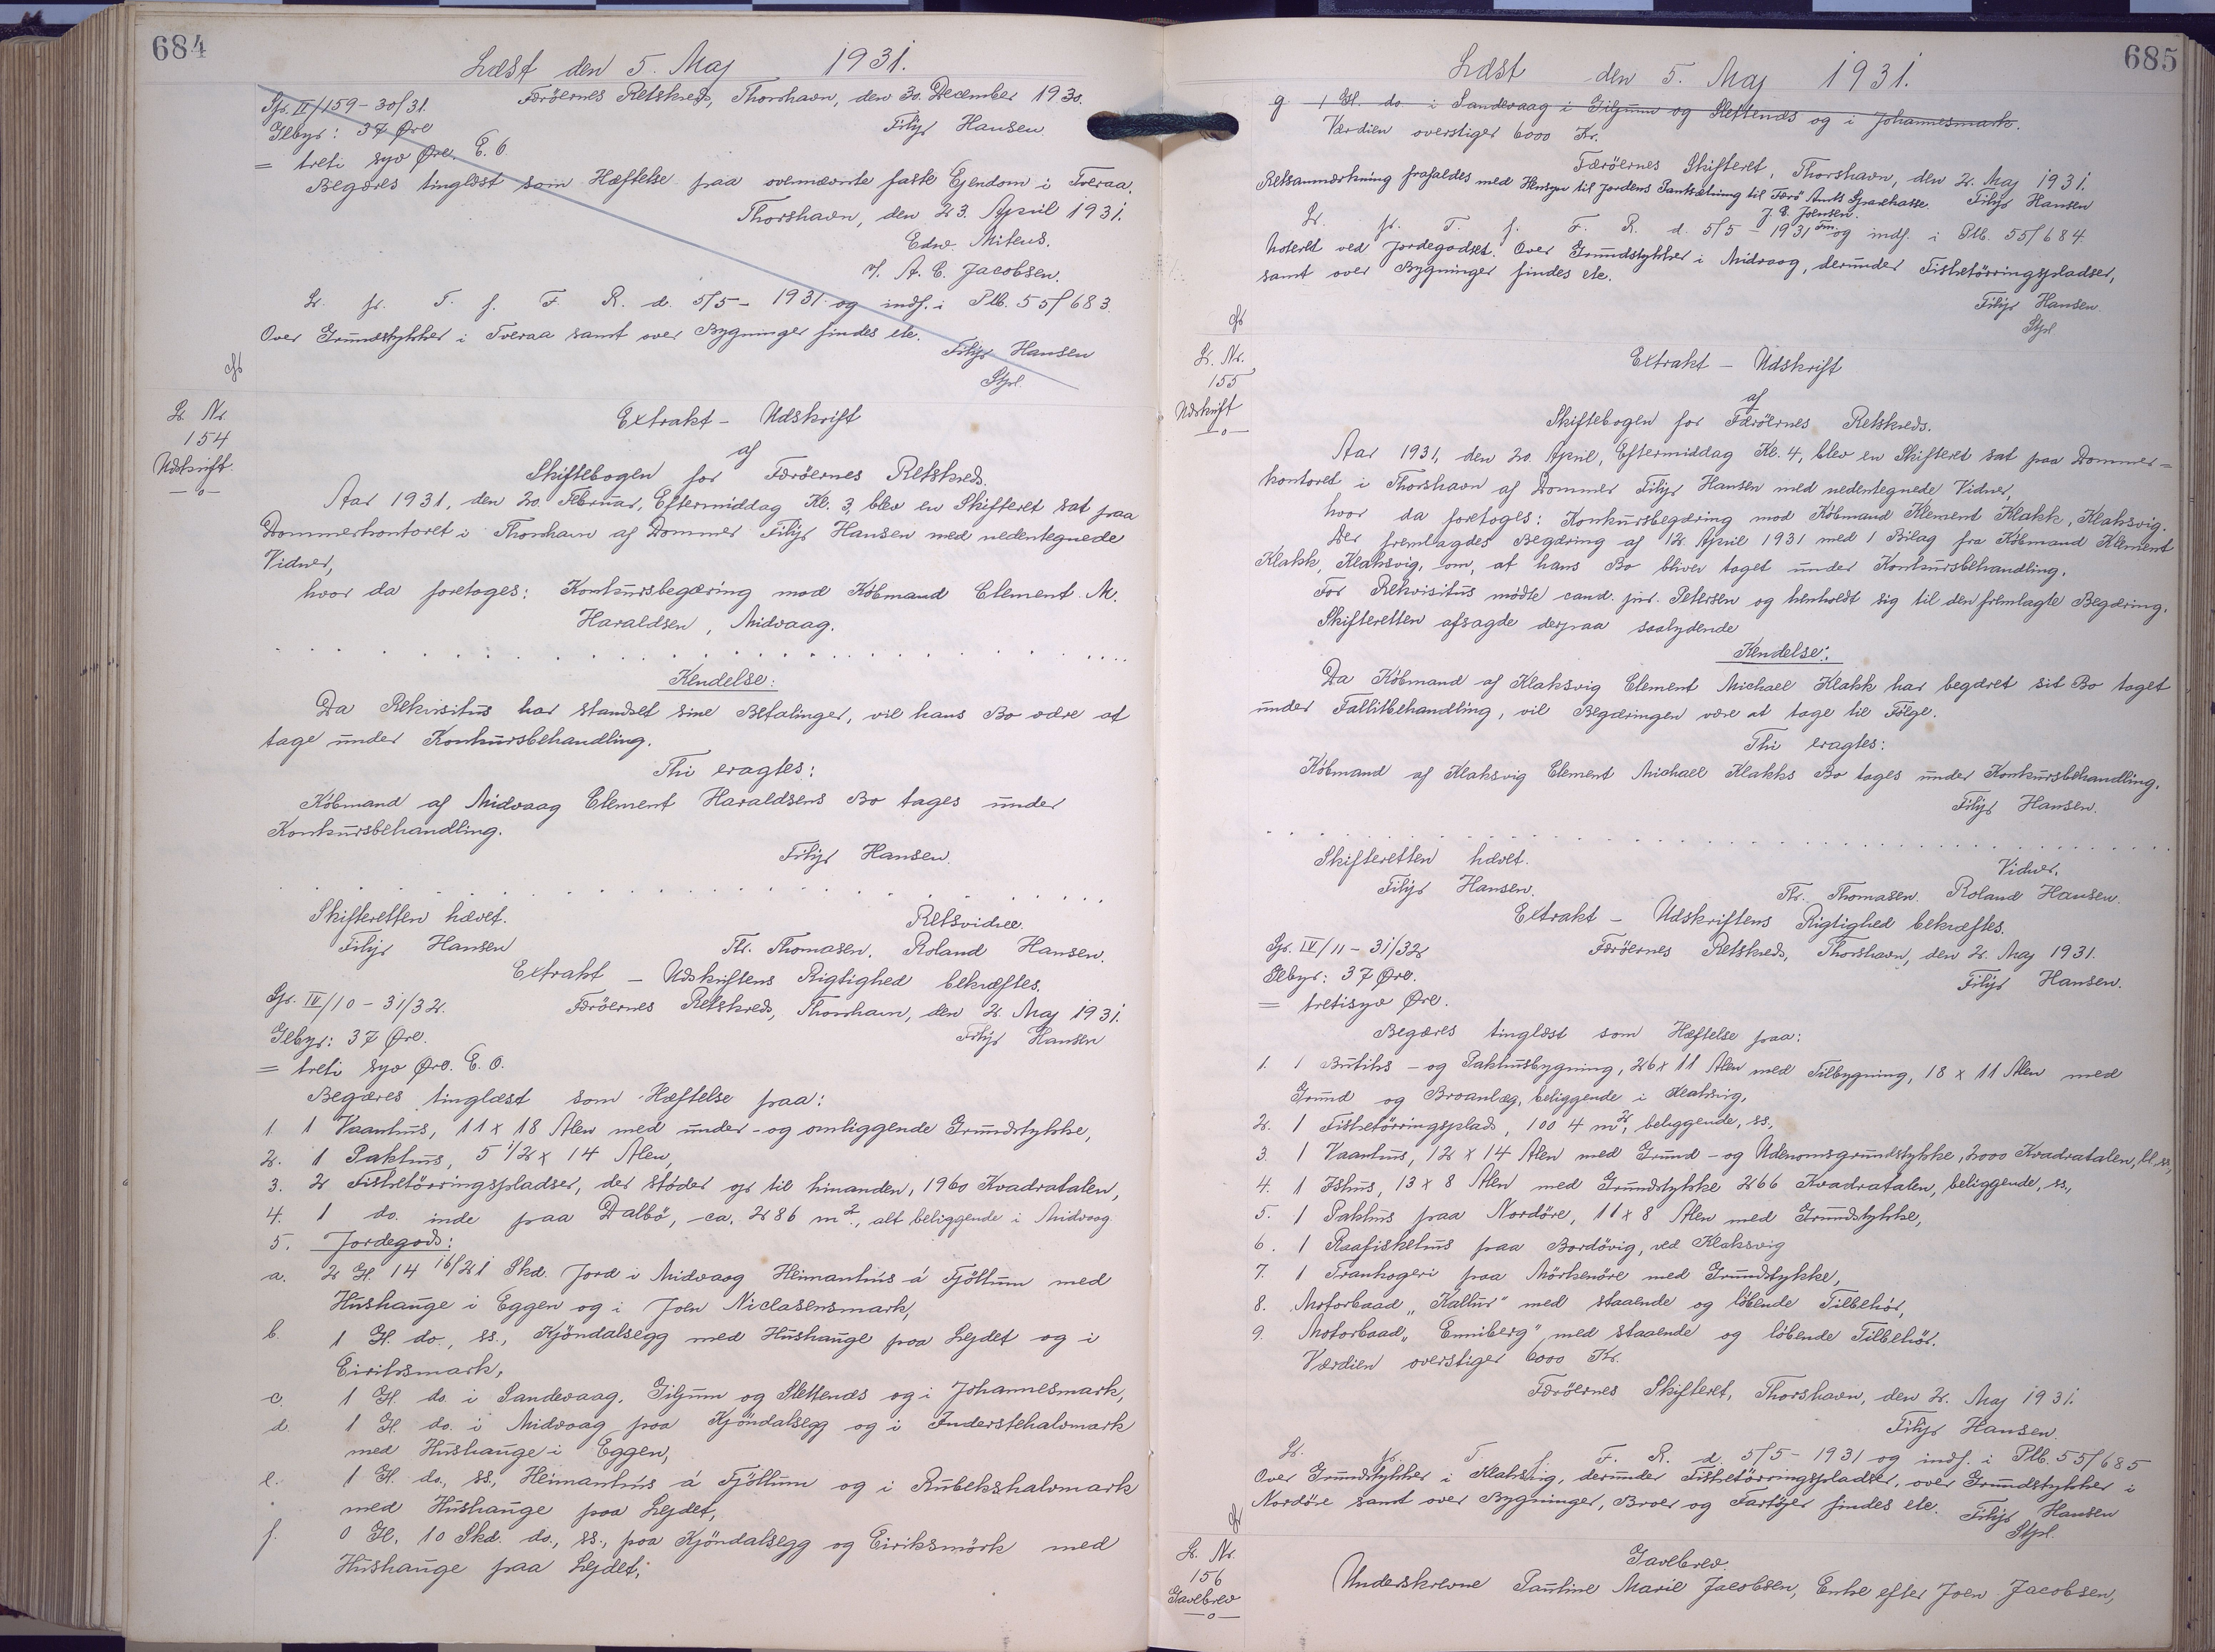 684
Læst den 5. Maj 1931.
Færöernes Retskreds, Thorshavn, den 30. December 1930.
Filip Hansen.
Sp. IV/159 - 30/31.
Gebyr: 37 Øre
= treti syv Øre. E. O.
Begæres tinglæst som Hæftelse paa ovennævnte faste Ejendom i Tveraa.
Thorshavn, den 23. April 1931.
Edw. Mitens.
v/. A. C. Jacobsen.
L. p. T. f. F. R. d. 5/5 - 1931 og indf. i Plb. 55/683.
Over Grundstykker i Tveraa samt over Bygninger findes ete.
Filip Hansen
Stpl.
L. Nr.
154
Udskrift.
—o—
Extrakt - Udskrift
af
Skiftebogen for Færöernes Retskreds.
Aar 1931, den 20. Februar, Eftermiddag Kl. 3, blev en Skifteret sat paa
Dommerkontoret i Thorshavn af Dommer Filip Hansen med nedentegnede
Vidner,
hvor da foretoges: Konkursbegæring mod Købmand Clement M.
Haraldsen, Midvaag.
Kendelse:
Da Rekvisitus har standset sine Betalinger, vil hans Bo være at
tage under Konkursbehandling.
Thi eragtes:
Købmand af Midvaag Clement Haraldsens Bo tages under
Konkursbehandling.
Filip Hansen.
Skifteretten hævet.
Retsvidner
Filip Hansen
Th. Thomasen. Roland Hansen.
Extrakt - Udskriftens Rigtighed bekræftes.
Sp. IV/10 - 31/32.
Færöernes Retskreds, Thorshavn, den 2. Maj 1931.
Gebyr: 37 Øre.
Filip Hansen
= treti syv Øre. E. O.
Begæres tinglæst som Hæftelse paa:
1. 1 Vaanhus, 11 x 18 Alen med under- og omliggende Grundstykke,
2. 1 Pakhus, 5 1/2 x 14 Alen,
3. 2 Fisketörringspladser, der støder op til hinanden, 1960 Kvadratalen,
4. 1 do. inde paa Dalbö, ca. 286 m2., alt beliggende i Midvaag
5. Jordegods:
a. 2 Gl. 14 16/21 Skd. Jord i Midvaag Heimanhús á Fjöllum med
Hushauge i Eggen og i Joen Niclasensmark,
b. 1 Gl. do., ss., Kjöndalsegg med Hushauge paa Lejdet og i
Eiriksmark,
c. 1 Gl. do. i Sandevaag. Giljum og Slettenæs og i Johannesmark,
d. 1 Gl. do. i Midvaag paa Kjöndalsegg og i Inderstehalvmark
med Hushauge i Eggen,
e. 1 Gl. do., ss., Heimanhús á Fjöllum og i Rubekshalvmark
med Hushauge paa Lejdet,
f. 0 Gl. 10 Skd. do., ss., paa Kjöndalsegg og Eiriksmörk med
Hushauge paa Lejdet;
685
Læst den 5. Maj 1931.
g. 1 Gl. do. i Sandevaag i Giljum og Slettenæs og i Johannesmark.
Værdien overstiger 6000 Kr.
Færöernes Skifteret, Thorshavn, den 2. Maj 1931.
Retsanmærkning frafaldes med Hensyn til Jordens Pantsætning til Færö Amts Sparekasse. Filip Hansen
J. P. Joensen.
L. p. T. f. F. R. d. 5/5 - 1931 og indf. i Plb. 55/684.
Noteret ved Jordegodset. Over Grundstykker i Midvaag, derunder Fisketörringspladser,
samt over Bygninger findes ete.
Filip Hansen
Stpl
L. Nr.
155
Udskrift
—o—
Extrakt - Udskrift
af
Skiftebogen for Færöernes Retskreds.
Aar 1931, den 20. April, Eftermiddag Kl. 4, blev en Skifteret sat paa Dommer=
kontoret i Thorshavn af Dommer Filip Hansen med nedentegnede Vidner,
hvor da foretoges: Konkursbegæring mod Købmand Klement Klakk, Klaksvig.
Der fremlagdes Begæring af 12. April 1931 med 1 Bilag fra Købmand Klement
Klakk, Klaksvig, om, at hans Bo bliver taget under Konkursbehandling.
For Rekvisitus mödte cand. jur. Petersen og henholdt sig til den fremlagte Begæring.
Skifteretten afsagde derpaa saalydende
Kendelse:
Da Købmand af Klaksvig Clement Michael Klakk har begæret sit Bo taget
under Fallitbehandling, vil Begæringen være at tage til Fölge.
Thi eragtes:
Købmand af Klaksvig Clement Michael Klakks Bo tages under Konkursbehandling.
Filip Hansen.
Skifteretten hævet.
Vidner.
Filip Hansen.
Th. Thomasen. Roland Hansen.
Extrakt - Udskriftens Rigtighed bekræftes.
Sp. IV/11 - 31/32
Færöernes Retskreds, Thorshavn, den 2. Maj 1931.
Gebyr: 37 Øre.
Filip Hansen.
= tretisyv Øre.
Begæres tinglæst som Hæftelse paa:
1. 1 Butiks- og Pakhusbygning, 26 x 11 Alen med Tilbygning, 18 x 11 Alen med
Grund og Broanlæg, beliggende i Klaksvig,
2. 1 Fisketörringsplads, 1004 m2, beliggende, ss.,
3. 1 Vaanhus, 12 x 14 Alen med Grund- og Udenomsgrundstykke, 2000 Kvadratalen, bl. ss.,
4. 1 Ishus, 13 x 8 Alen med Grundstykke 266 Kvadratalen, beliggende, ss.,
5. 1 Pakhus paa Nordöre, 11 x 8 Alen med Grundstykke,
6. 1 Raafiskehus paa Bordövig, ved Klaksvig
7. 1 Trankogeri paa Mörkenöre med Grundstykke,
8. Motorbaad „Kallur" med staaende og löbende Tilbehör,
9. Motorbaad „Enniberg", med staaende og löbende Tilbehör.
Værdien overstiger 6000 Kr.
Færöernes Skifteret, Thorshavn, den 2. Maj 1931.
Filip Hansen.
L. p. T. f. F. R. d. 5/5 - 1931 og indf. i Plb. 55/685
Over Grundstykker i Klaksvig, derunder Fisketörringspladser, over Grundstykker i
Nordöre samt over Bygninger, Broer og Fartöjer findes ete. Filip Hansen
Stpl.
L. Nr.
156
Gavebrev
—o—
Gavebrev.
Underskrevne Pauline Marie Jacobsen, Enke efter Joen Jacobsen,